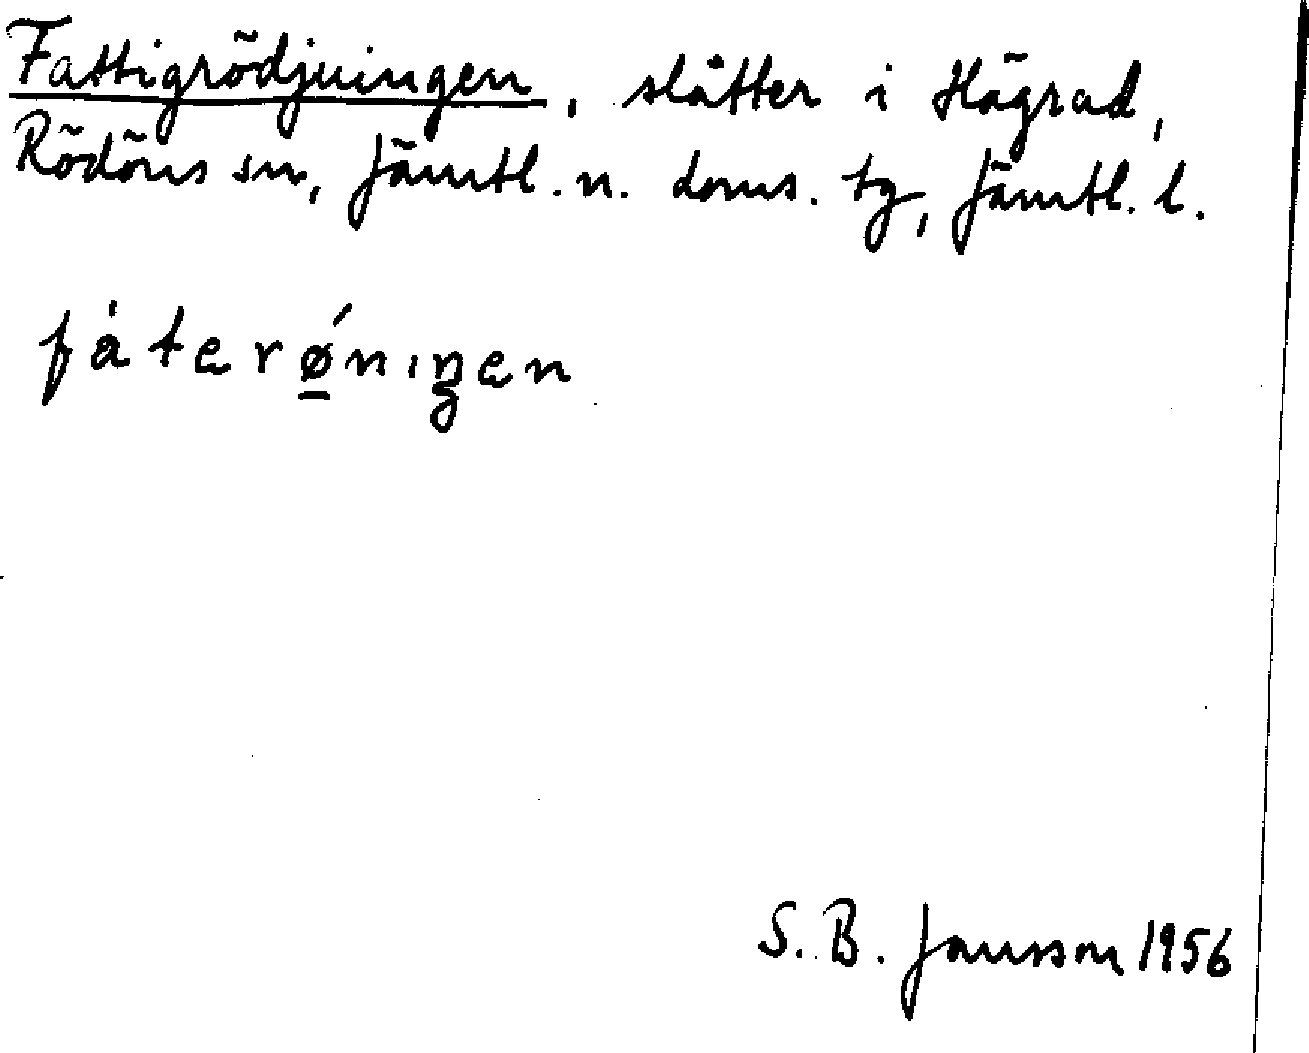 Fattigrödjningen, slåtter i Högrad,
Rödöns sn, Jämtl. n. doms. tg, Jämtl. l.
fàterǿ̱niŋen
S. B. Jansson 1956